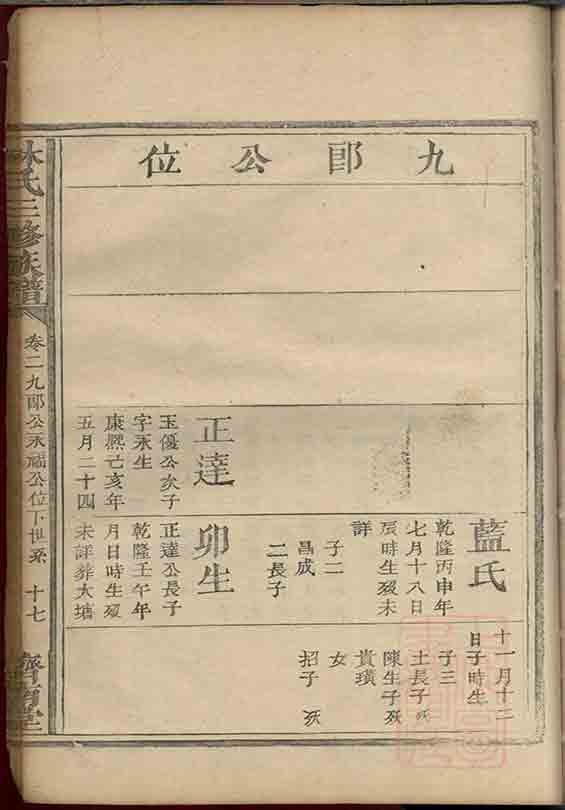 九郎公位
藍氏
乾隆丙申年
七月十八日
辰時生歿未
詳
子二
昌成
二長子
正達
玉優公次子
字永生
康熙己亥年
五月二十四
卯生
正達公長子
乾隆壬午年
月日時生歿
未詳葬大塘
十一月十二
日子時生
子三
土長子歿
陳生子歿
貴璜
女
招子 歿
林氏三修族譜
卷二九郎公永福公位下世系 十七
齊南堂